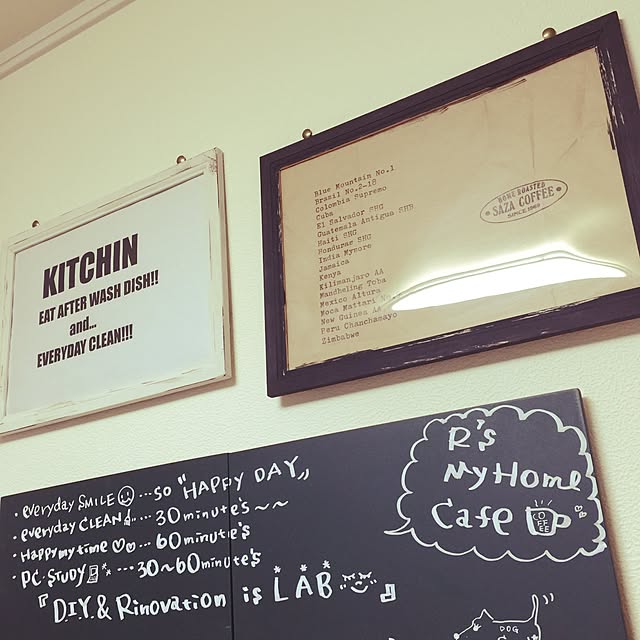 KITCHIN
EAT AFTER WASH DISH!!
and...
EVERYDAY CLEAN!!!
Blue Mountain No.1
Brazil No.2-18
Colombia Supremo
Cuba
El Salvador SHG
Guatemala Antigua SHB
Haiti SHG
Honduras SHG
India Mysore
Jamaica
Kenya
Kilimanjaro AA
Mandheling Toba
Mexico Altura
Moca Mattari No
New Guinea AA
Peru Chanchamayo
Zimbabwe
HOME ROASTED
SAZA COFFEE
SINCE 1969
R's
My Home
Cafe
COFFEE
・everyday SMILE ... so "HAPPY DAY„
・everyday CLEAN ... 30minute's~~
・Happy my time ♡♡ ... 60minute's
・PC.STUDY ... 30~60minute's
『D.I.Y. & Rinovation is LAB 』
DOG